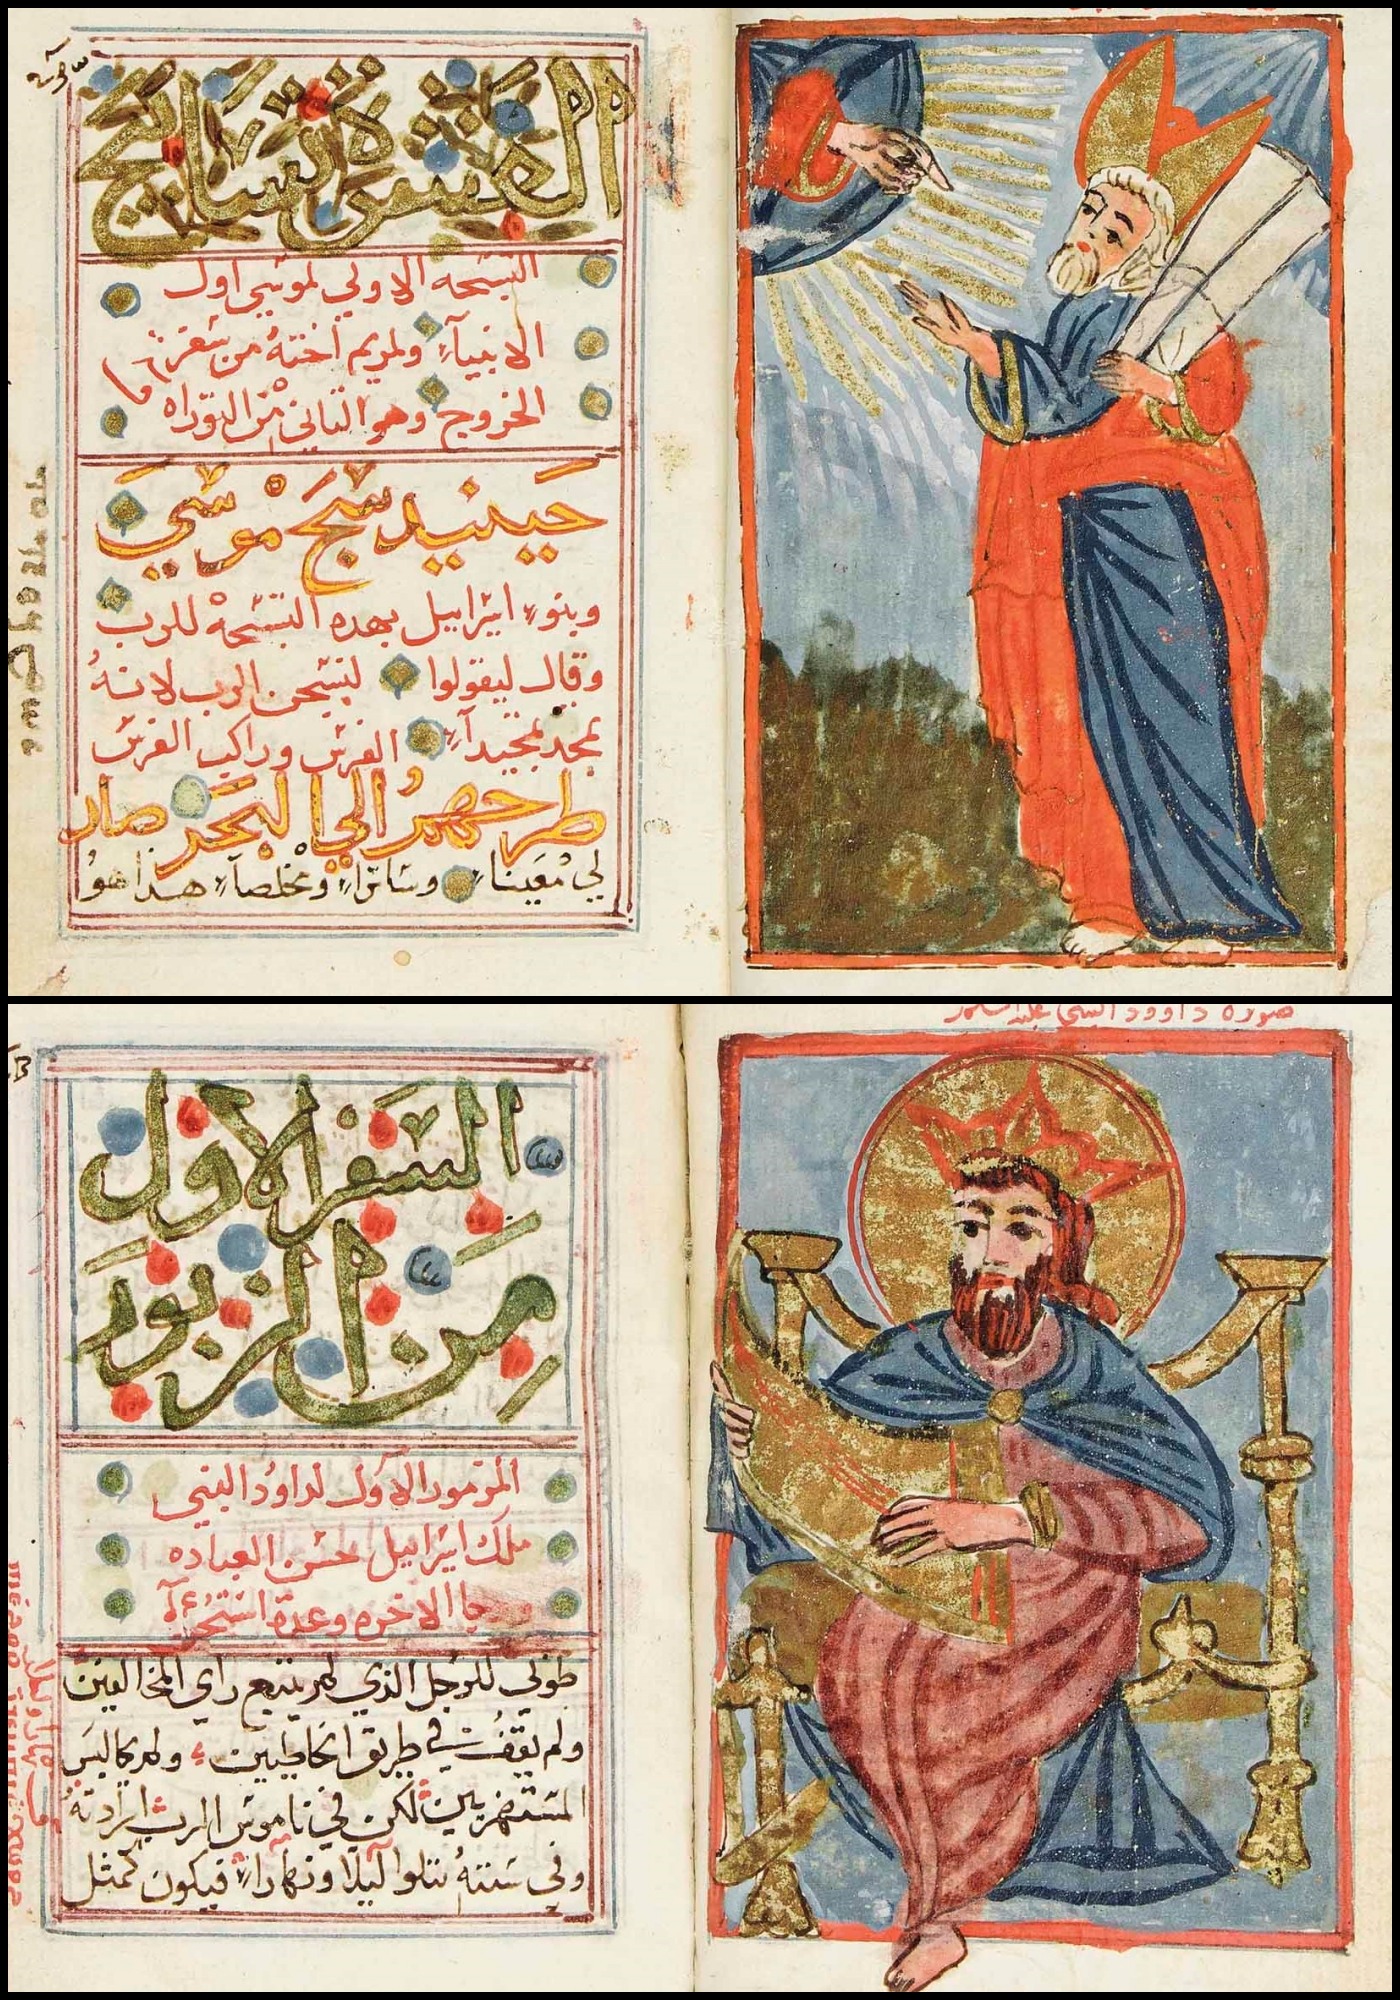 العشرة تسابيح
التسبحه الاولي لموسي اول
الانبياء ولمريم اخته من سفر
الخروج وهو الثاني من التوراه
حينيد سبح موسي
وبنوا اسراييل بهده التسبحه للرب
وقال ليقولوا لنسبحن الرب لانه
بمجد تمجيداً الفرس وراكب الفرس
طرحهم الي البحر صار
لي معيناً وساتراً ومخلصاً هدا هو
صورة داوود النبي عليه السلام
السفر الاول
من الزبور
المزمور الاول لداود النبي
ملك اسراييل حسن العباده
الاخره وعدة
طوبي للرجل الذي لم يتبع راي المخالفين
ولم يقف في طريق الخاطيين ولم يجالس
المستهزيين لكن في ناموس الرب ارادته
وفي سنته يتلوا ليلا ونهاراً فيكون كمثل